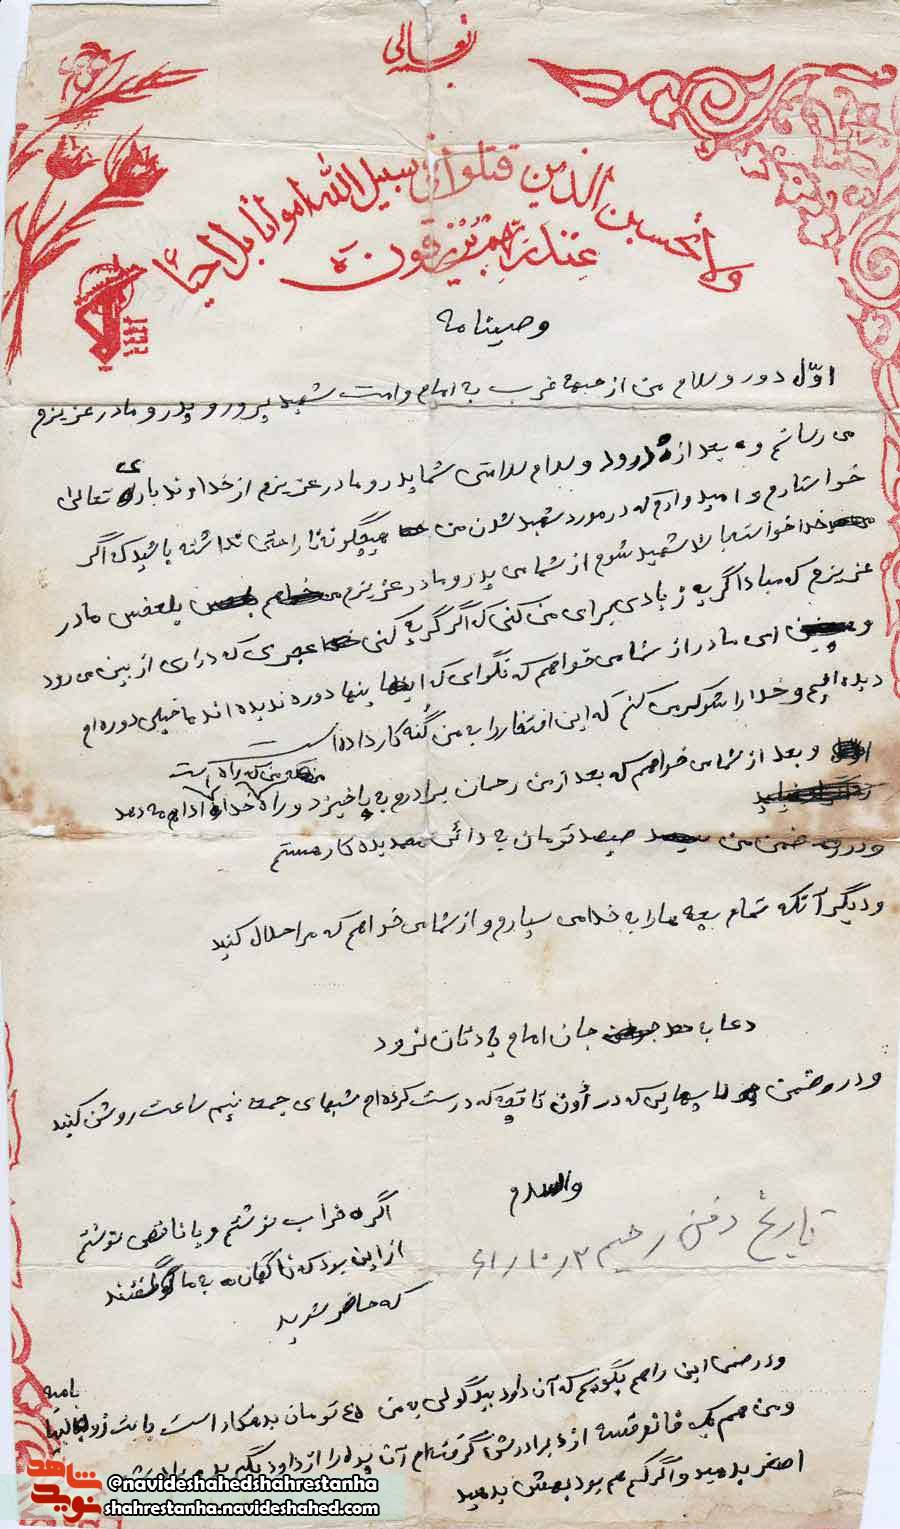 تعالی
ولا تحسبن الذین قتلوا فی سبیل الله امواتا بل احیاء
عند ربهم یرزقون
وصیتنامه
اوّل درور وسلام من از جبهه غرب به امام وامت شهید پرور و پدر و مادر عزیزم
می رسانم و بعد از درود و سلام سلامتی شما پدر و مادر عزیزم از خداوند باری تعالی
خواستارم و امیدوارم که در مورد شهید شدن من هیچگونه ناراحتی نداشته باشید که اگر
خدا خواسته باشد شهید شوم از شما می پدر و مادر عزیزم می خواهم بلعض مادر
عزیزم که مبادا گریه زیادی برای من کنی که اگر گریه کنی عجری که داری از بین می رود
و ای مادر از شما می خواهم که نگوای که اینها دوره ندیده اند ما خیلی دوره ام
دیده ایم و خدا را شوکر می کنم که این افتغار را به من گنه کار داده است
و بعد از شما می خواهم که بعد از من رحمان برادرم به پا خیزد و راه خدا را ادامه دهد
که راه است
ودر ضمن من صیصد تومان به دائی بدیده کار هستم
ودیگر آنکه تمام بچه ها را به خدا می سپارم و از شما می خواهم که مرا حلال کنید
دعا به جان امام یادتان نرود
ودر ضمن که در اون تاقچه که درست کرده ام شبهای جمعه نیم ساعت روشن کنید
والسلام
تاریخ دفن رحیم ۶۱/۱۰/۳
اگر خراب نوشتم و یا ناقص نوشتم
از این بود که ناگهان به ما گفتند
که حاضر شوید
ودر ضمن این را هم بگویم که آن داود بیدگولی به من ۴۵ تومان بدهکار است بابت
ومن هم یک فانوقسه از برادرش گرفته ام آن پول را از داود بگیرید
اصغر بدهید واگر کم هم بود بهش بدهید
شاهد
نوید
©navideshahedshahrestanha
shahrestanha.navideshahed.com